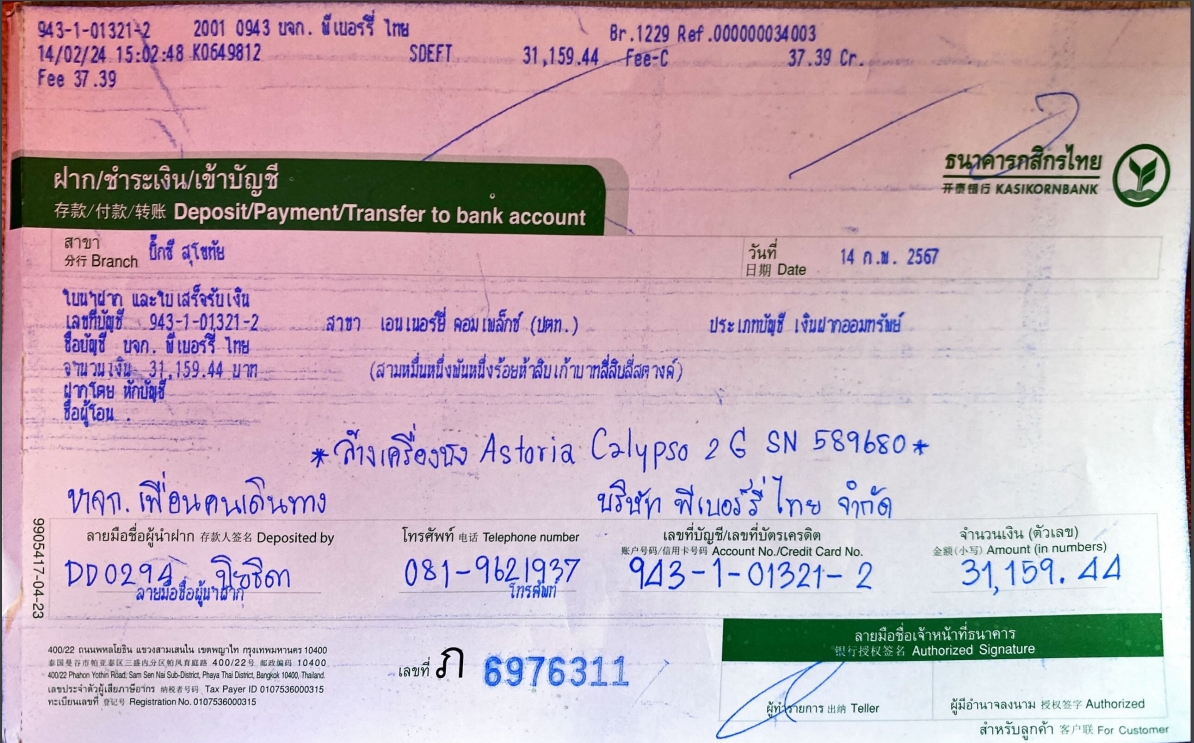 943-1-01321-2 2001 0943 บจก. พีเบอร์รี่ ไทย Br.1229 Ref.000000034003
14/02/24 15:02:48 K0649812 SDEFT 31,159.44 Fee-C 37.39 Cr.
Fee 37.39
ธนาคารกสิกรไทย
开泰银行 KASIKORNBANK
ฝาก/ชำระเงิน/เข้าบัญชี
存款/付款/转账 Deposit/Payment/Transfer to bank account
สาขา
分行 Branch บิ๊กซี สุโขทัย
วันที่
日期 Date 14 ก.พ. 2567
ใบนำฝาก และใบเสร็จรับเงิน
เลขที่บัญชี 943-1-01321-2 สาขา เอนเนอร์ยี่ คอมเพล็กซ์ (ปตท.) ประเภทบัญชี เงินฝากออมทรัพย์
ชื่อบัญชี บจก. พีเบอร์รี่ ไทย
จำนวนเงิน 31,159.44 บาท (สามหมื่นหนึ่งพันหนึ่งร้อยห้าสิบเก้าบาทสี่สิบสี่สตางค์)
ฝากโดย หักบัญชี
ชื่อผู้โอน .
*ล้างเครื่องชง Astoria Calypso 2 G SN 589680*
หจก. เพื่อนคนเดินทาง บริษัท พีเบอร์รี่ ไทย จำกัด
ลายมือชื่อผู้นำฝาก 存款人签名 Deposited by
โทรศัพท์ 电话 Telephone number
เลขที่บัญชี/เลขที่บัตรเครดิต
账户号码/信用卡号码 Account No./Credit Card No.
จำนวนเงิน (ตัวเลข)
金额(小写) Amount (in numbers)
DD0294 081-9621937 943-1-01321-2 31,159.44
ลายมือชื่อผู้นำฝาก โทรศัพท์
9905417-04-23
400/22 ถนนพหลโยธิน แขวงสามเสนใน เขตพญาไท กรุงเทพมหานคร 10400
泰国曼谷市帕亚泰区三盛内分区帕凤育庭路 400/22号 邮政编码 10400
400/22 Phahon Yothin Road, Sam Sen Nai Sub-District, Phaya Thai District, Bangkok 10400, Thailand.
เลขประจำตัวผู้เสียภาษีอากร 纳税者号码 Tax Payer ID 0107536000315
ทะเบียนเลขที่ 登记号 Registration No. 0107536000315
เลขที่ ภ 6976311
ลายมือชื่อเจ้าหน้าที่ธนาคาร
银行授权签名 Authorized Signature
ผู้ทำรายการ 出纳 Teller
ผู้มีอำนาจลงนาม 授权签字 Authorized
สำหรับลูกค้า 客户联 For Customer